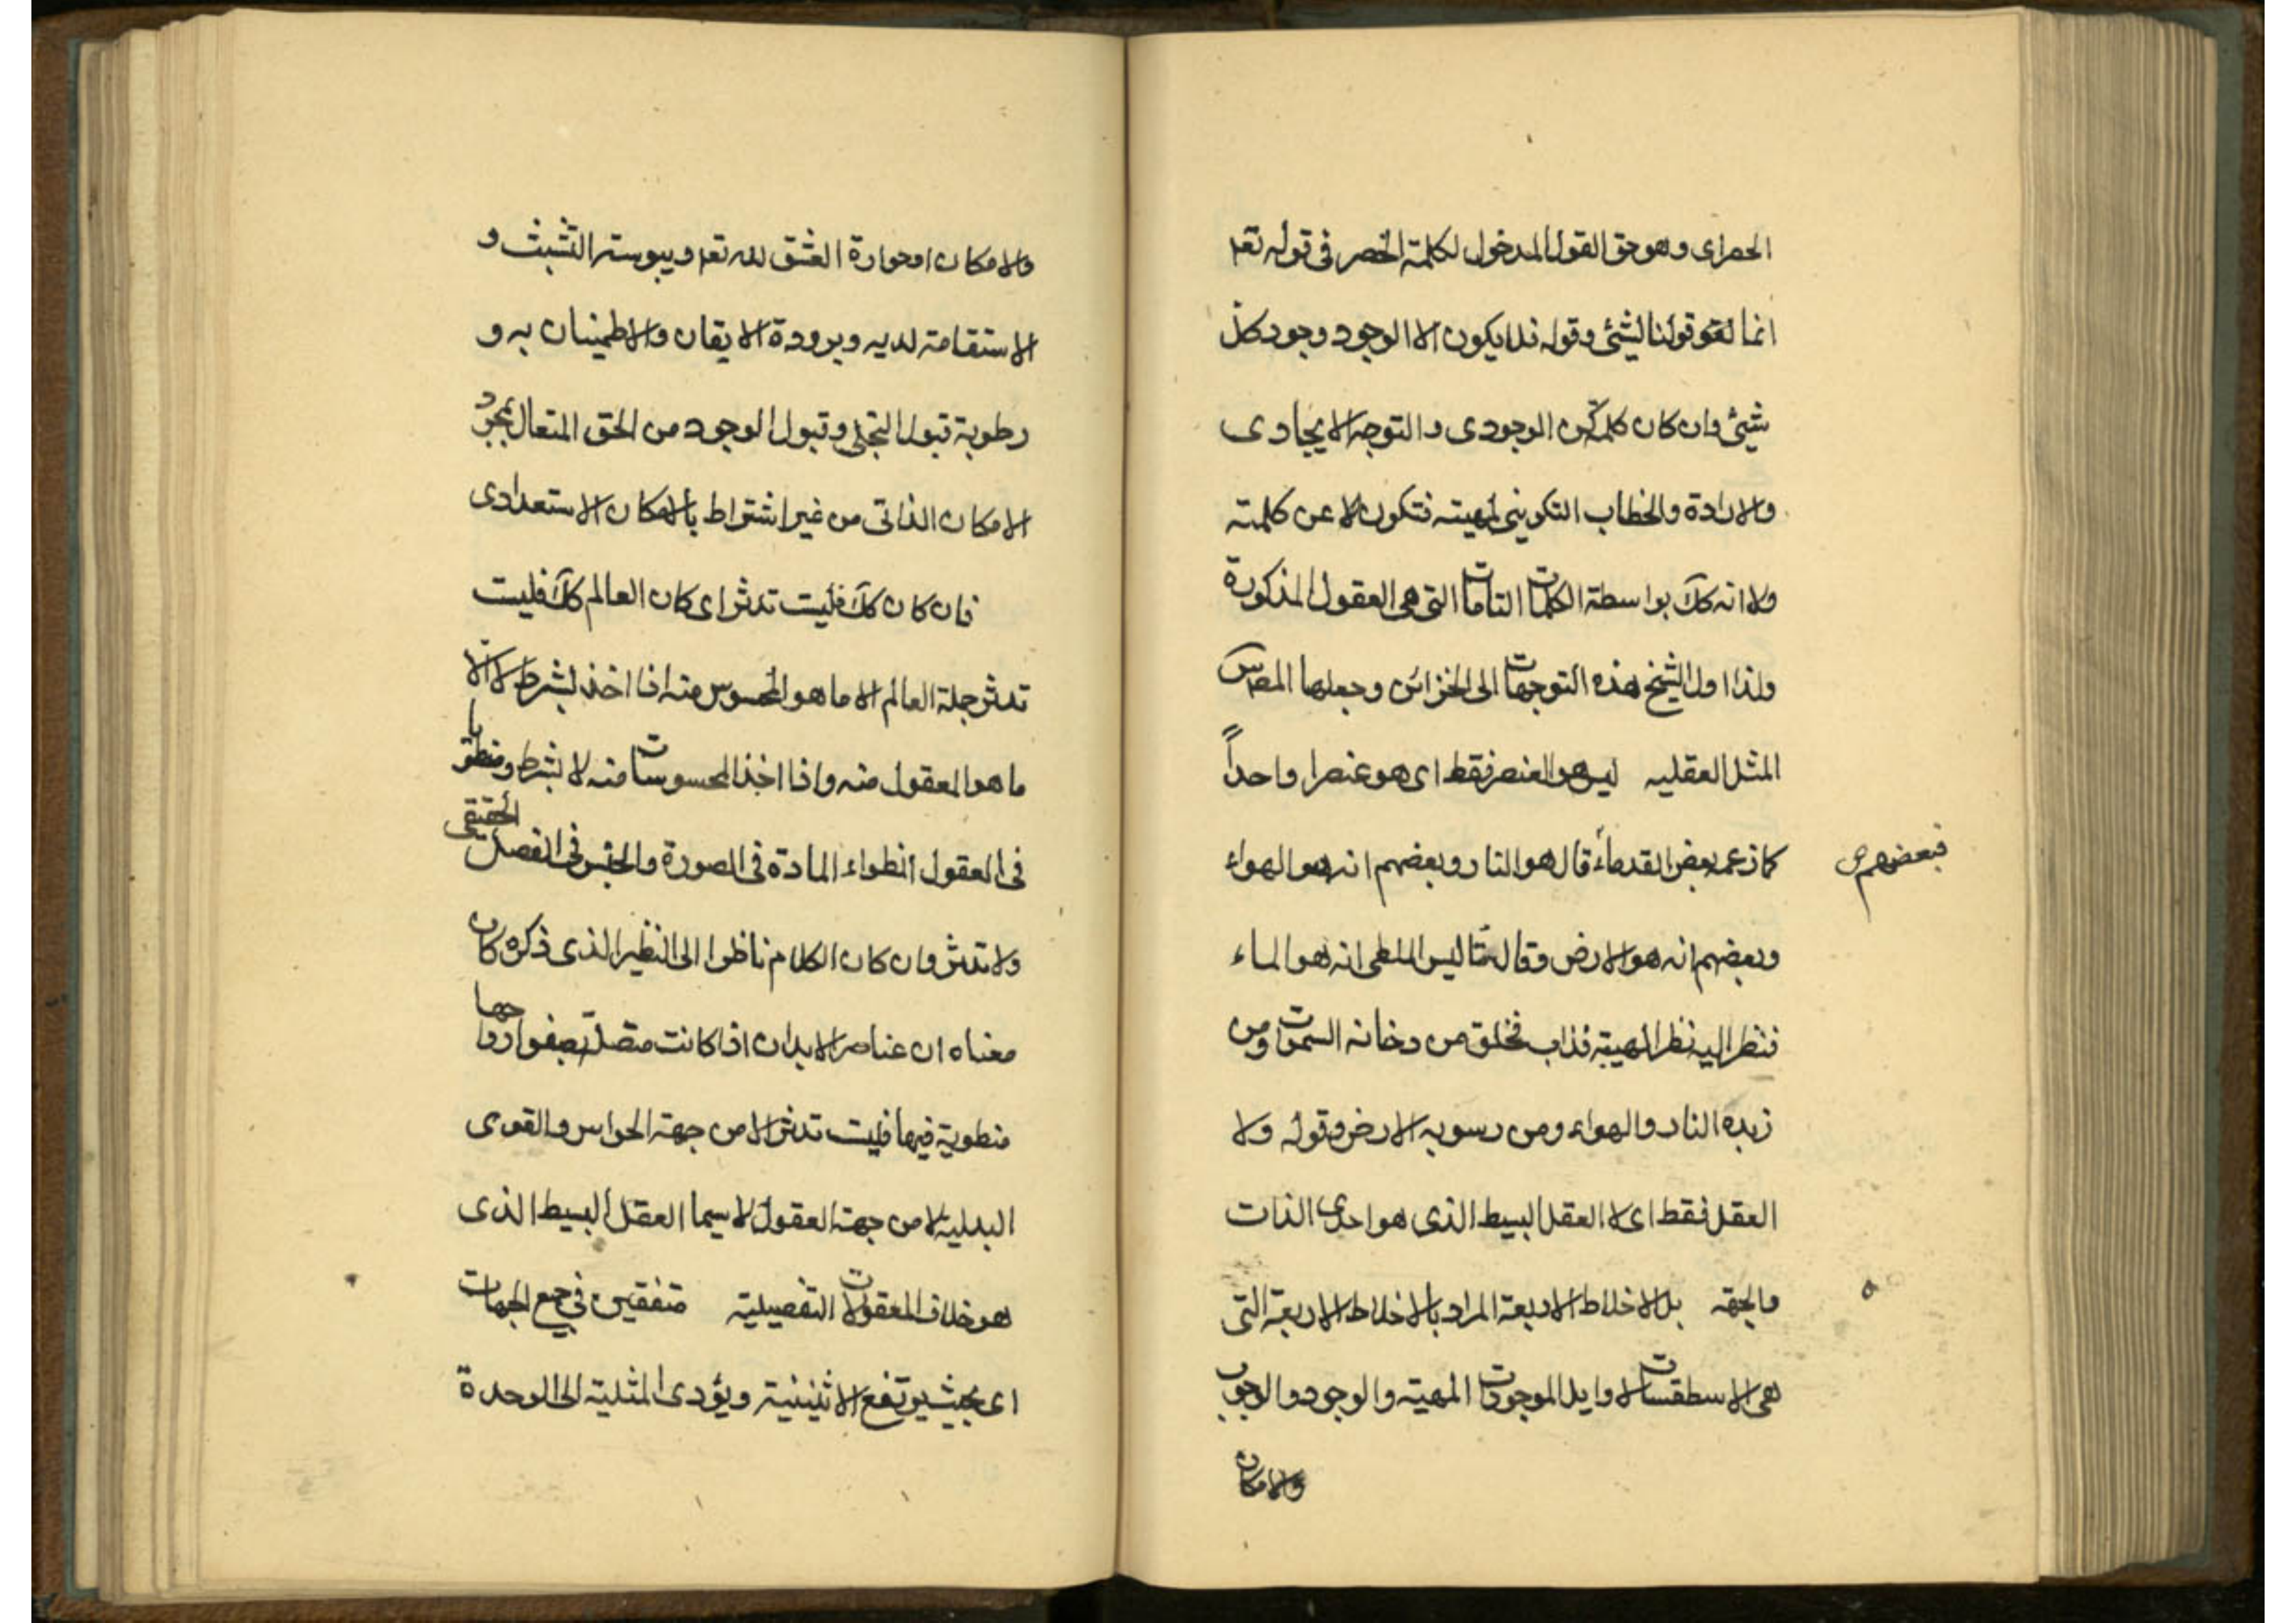 الحصرای وهو حق القول المدخول لكلمة الحصر فی قوله تعه
انما لقو قولنا لشیئ وقوله فلا یكون الا الوجود وجود كل
شیئ وان كان كلمة كن الوجودی والتوجه الایجادی
والارادة والخطاب التكوینی لمهیته فتكون لا عن كلمته
ولا انه كك بواسطة الكلمات التامات التی هی العقول المذكورة
ولذا اول الشیخ هذه التوجهات الی الخزائن وجعلها
المثل العقلیه لیس هو العنصر فقط ای هو عنصرا واحداً
كما زعم بعض القدماء قال هو النار وبعضهم انه هو الهواء
فبعضهم ص
وبعضهم انه هو الارض وقال ثالیس الملطی انه هو الماء
فنظر الیه نظر الهیبة فذاب فخلق من دخانه السموات ومن
زبده النار والهواء ومن رسوبه الارض وقوله ولا
العقل فقط ای لا العقل البسیط الذی هو احدی الذات
والجهة بل الاخلاط الاربعة المراد بالاخلاط الاربعة التی
هی الاسطقسات لاواید الموجودات المهیة والوجود والوجوب
والامكان
والامكان او حرارة العشق لله تعه ویبوسة التشبث و
الاستقامة لدیه وبرودة الایقان والاطمینان به و
رطوبة قبول التجلی وقبول الوجود من الحق المتعال بمجرد
الامكان الذاتی من غیر اشتراط بالامكان الاستعدادی
فان كان كك فلیت تدثر ای كان العالم كك فلیت
تدثر جملة العالم الا ما هو المحسوس منه اذا اخذ بشرط لا الا
ما هو المعقول منه واذا اخذ المحسوسات منه لا بشرط ومنطویا
فی العقول انطواء المادة فی الصورة والجنس فی الفصل الحقیقی
ولا تدثر وان كان الكلام ناظرا الی النظیر الذی ذكره كان
معناه ان عناصر الابدان اذا كانت متصلة بصفو ارواحها
منطویة فیها فلیت تدثر الا من جهة الحواس والقوی
البدلیة لا من جهة العقول لا سیما العقل البسیط الذی
هو خلاف المعقولات التفصیلیة متفقین فی جمیع الجهات
ای بحیث یرتفع الاثنینیة ویؤدی المثلیة الی الوحدة